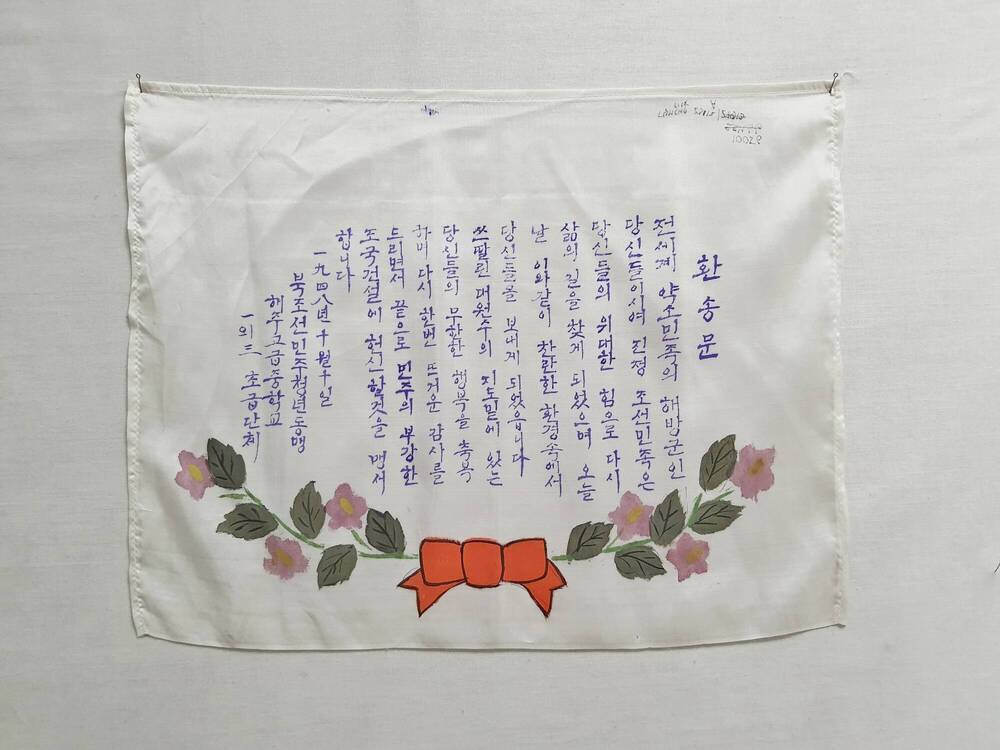 환송문
전세계 약소민족의 해방군인
당신들이시여 진정 조선민족은
당신들의 위대한 힘으로 다시
삶의 길을 찾게 되였으며 오늘
날 이와같이 찬란한 환경속에서
당신들을 보내게 되였읍니다
쓰딸린 대원수의 지도밑에 있는
당신들의 무한한 행복을 축복
하며 다시 한번 뜨거운 감사를
드리면서 끝으로 민주의 부강한
조국건설에 헌신할것을 맹서
합니다
一九四八年十월十일
북조선민주청년동맹
해주고급중학교
一의三 초급단체
10028